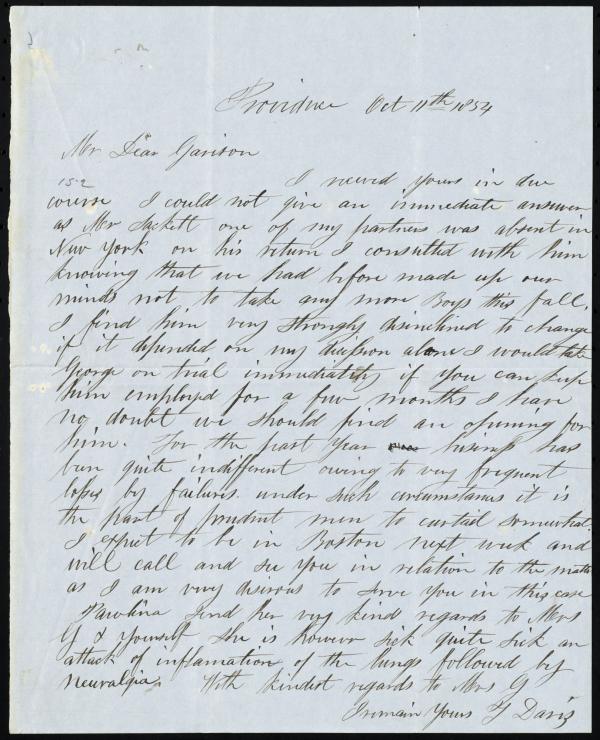 Providence Oct 11th 1854
My Dear Garison
152
I recived yours in due
course I could not give an immediate answer
as Mr Sackett one of my partners was absent in
New York on his return I consulted with him
knowing that we had before made up our
minds not to take any more Boys this fall.
I find him very strongly disinclined to change
if it depended on my decission alone I would take
George on trial immediately if you can keep
him employed for a few months I have
no doubt we should find an opening for
him. For the past Year business has
been quite indifferent owing to very frequent
losses by failures. under such circumstances it is
the part of prudent men to curtail somewhat.
I expect to be in Boston next week and
will call and see you in relation to the matter
as I am very desirous to serve you in this case
Paroolina send her very kind regards to Mrs
G & Yourself she is however sick quite sick an
attack of inflamation of the lungs followed by
Neuralgia. With kindest regards to Mrs G
I remain Yours T Davis